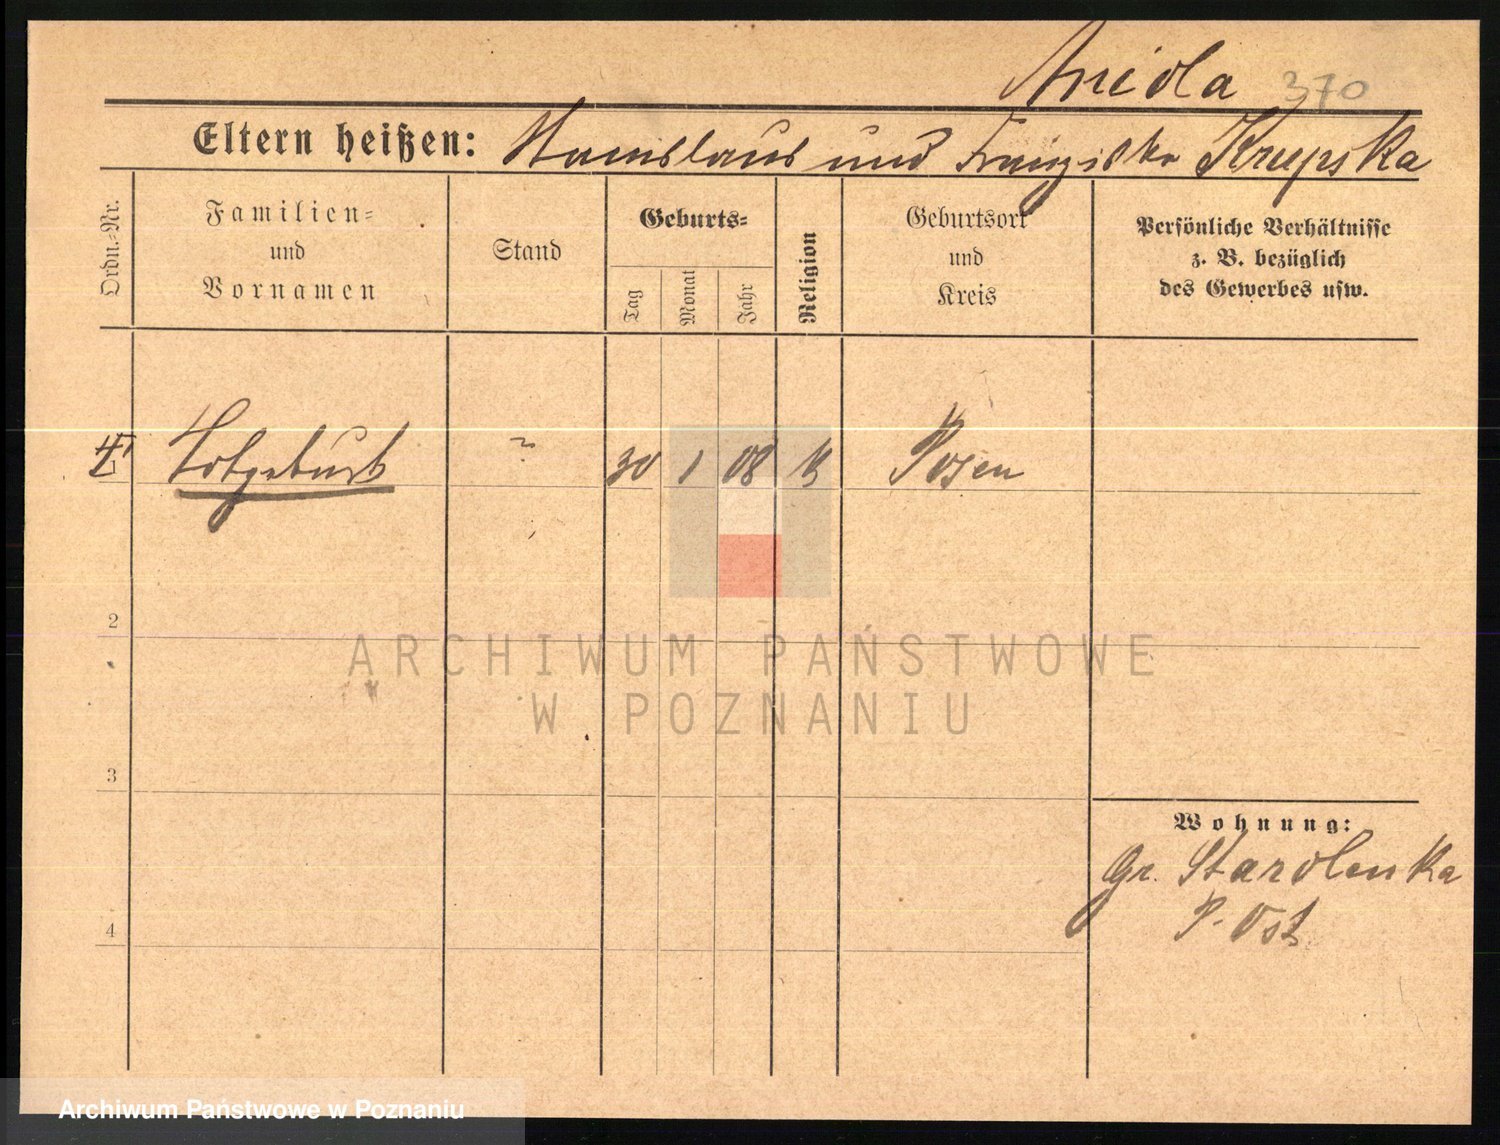 Aniola 370
Eltern heißen: Stanislaus und Franziska Krupska
Ordn.-Nr.
Familien-
und
Vornamen
Stand
Geburts-
Tag
Monat
Jahr
Religion
Geburtsort
und
Kreis
Persönliche Verhältnisse
z. B. bezüglich
des Gewerbes usw.
Totgeburt 30 1 08 K Posen
2
3
4
Wohnung:
Gr. Starolenka
P. Ost
ARCHIWUM PAŃSTWOWE
W POZNANIU
Archiwum Państwowe w Poznaniu